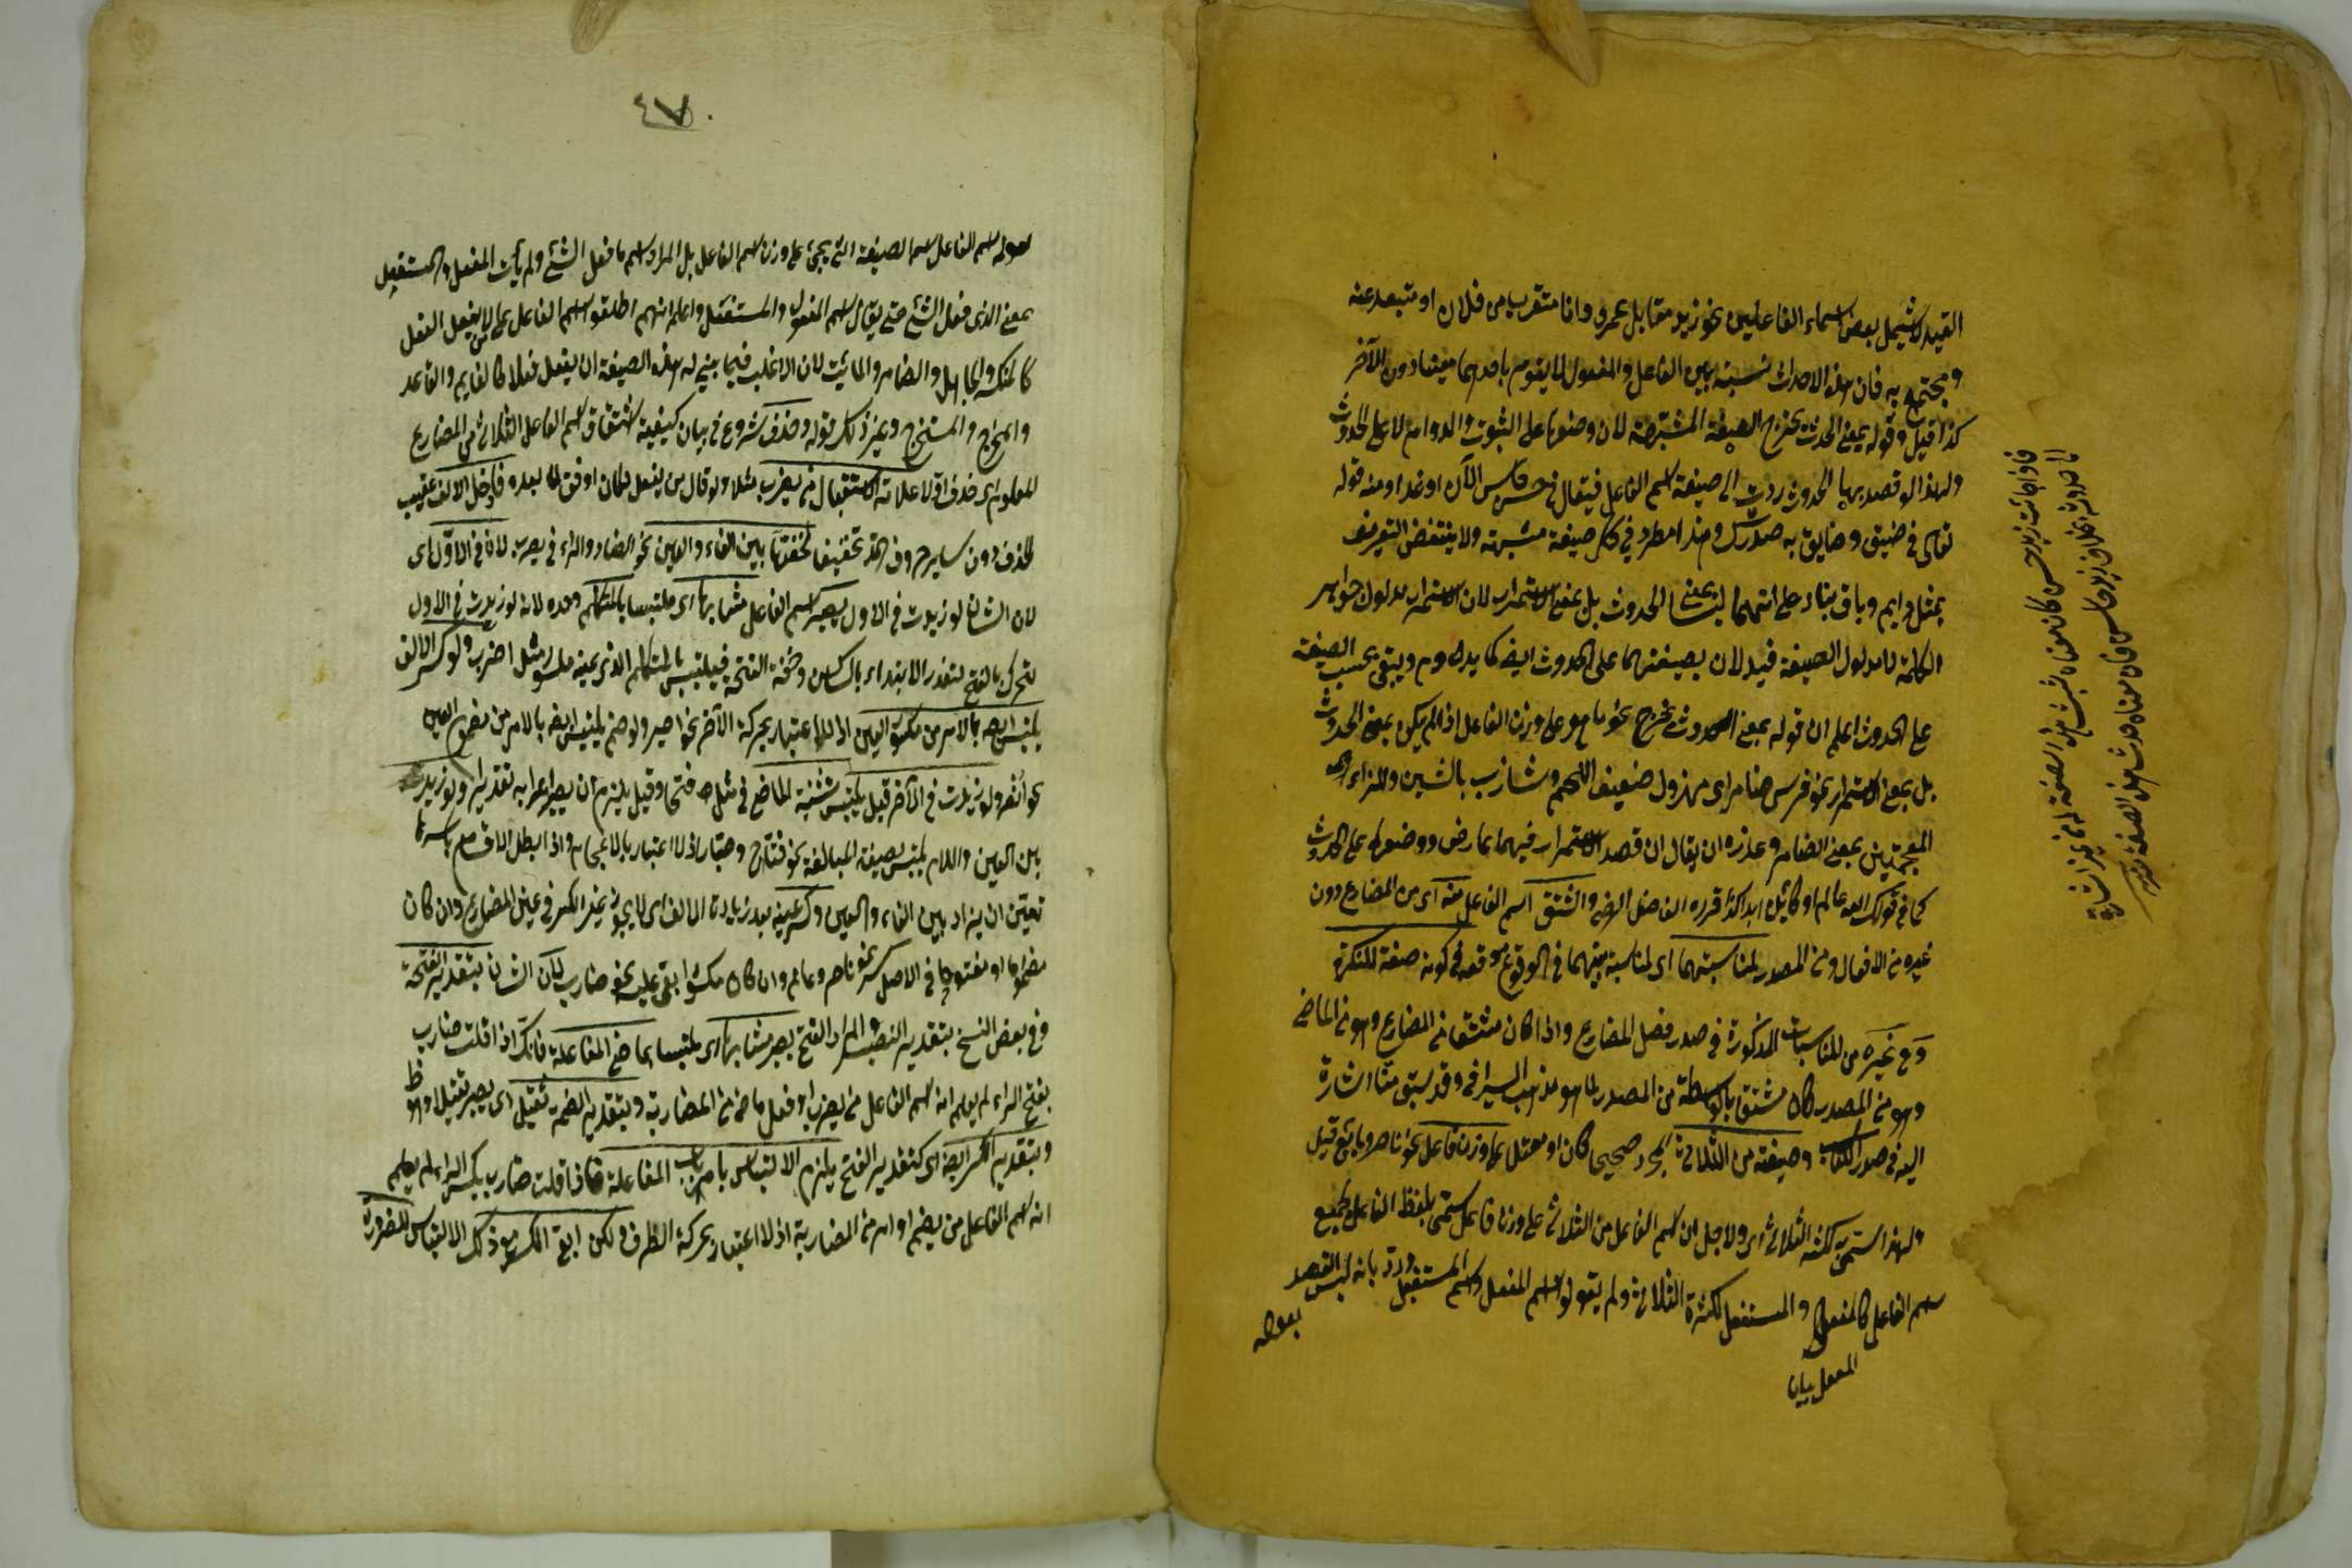 القيد لا يشمل بعض اسماء الفاعلين نحو زيد مقابل عمرو وانا متقرب من فلان او متبعد عنه
ومجتمع به فان هذه الاحداث نسبة بين الفاعل والمفعول لا يقوم باحدهما معينا دون الآخر
كذا قيل وقوله بمعنى الحدث يخرج الصفة المشبهة لان وضعها على الثبوت والدوام لا على الحدوث
ولهذا لو قصد بها الحدوث ردت الى صيغة اسم الفاعل فيقال في حسن حاسن الآن او غدا ومنه قوله
تعالى في ضيق وضايق به صدرك وهذا مطرد في كل صفة مشبهة ولا ينتقض التعريف
بمثل دايم وباق بناء على انهما ليسا بمعنى الحدوث بل بمعنى الاستمرار لان الاستمرار مدلول جواهر
الكلمة لا مدلول الصيغة فيدلان بصيغتهما على الحدوث ايضا كما يدل دوم ويبقى بحسب الصيغة
على الحدوث اعلم ان قوله بمعنى الحدوث يخرج نحو ما هو على وزن الفاعل اذا لم يكن بمعنى الحدوث
بل بمعنى الاستمرار نحو فرس ضامر اى مهزول ضعيف اللحم وشازب بالشين والزاء
المعجمتين بمعنى الضامر وعذره ان يقال ان قصد الاستمرار فيهما عارض ووضعها على الحدوث
كما في قولك الله عالم او كائن ابدا كذا قرره الفاضل الرضي واشتق اسم الفاعل منه اى من المضارع دون
غيره من الافعال ومن المصدر لمناسبتهما اى لمناسبة بينهما في الوقوع موقعه في كونه صفة للنكرة
وفي غيره من المناسبات المذكورة في صدر فصل المضارع واذا كان مشتقا من المضارع وهو من الماضي
وهو من المصدر كان مشتقا بالواسطة من المصدر لما هو مذهب السيرافي وقد سبق منا اشارة
اليه في صدر الكتاب وصيغته من الثلاثي المجرد صحيحا كان او معتلا على وزن فاعل نحو ناصر وبايع قيل
ولهذا سمي لكثرة الثلاثي اى ولاجل ان اسم الفاعل من الثلاثي على وزن فاعل سمي بلفظ الفاعل لجميع
اسم الفاعل كالمفعل والمستفعل لكثرة الثلاثي ولم يقولوا اسم المفعل واسم المستفعل ورد بانه ليس القصد
بقوله
٤٧
بقوله اسم الفاعل اسم الصيغة التي يجيء على وزن اسم الفاعل بل المراد اسم ما فعل الشيء ولم يأت المفعل والمستفعل
بمعنى الذي فعل الشيء حتى يقال اسم المفعل والمستفعل واعلم انهم اطلقوا اسم الفاعل على من لا يفعل الفعل
كالمنكسر والجاهل والضامر والمائت لان الاغلب فيما بني له هذه الصيغة ان يفعل فعلا كالقايم والقاعد
والمخرج والمستخرج وغير ذلك قوله وحذف شروع في بيان كيفية اشتقاق اسم الفاعل الثلاثي من المضارع
المعلوم اى حذف اولا علامة الاستقبال من يضرب مثلا ولو قال من يفعل لكان اوفق لما بعده فادخل الالف عقيب
الحذف دون ساير حروف المد تخفيفا لخفتها بين الفاء والعين نحو الضاد والراء في يضرب لان في الاول اى
لان الشان لو زيدت في الاول يصير اسم الفاعل مشابها اى ملتبسا بالمتكلم وحده لانه لو زيدت في الاول
لتحرك بالفتح لتعذر الابتداء بالساكن وخفة الفتحة فيلتبس بالمتكلم الذي عينه مكسور مثل اضرب ولو كسر الالف
يلتبس ايضا بالامر من مكسور العين اذ لا اعتبار بحركة الآخر نحو اصبر ولو ضم يلتبس ايضا بالامر من مضموم العين
نحو انصر ولو زيدت في الآخر قيل يلتبس بتثنية الماضي في مثل فتحا وقيل يلزم ان يصير اعرابه تقديرا ولو زيدت
بين العين واللام يلتبس بصيغة المبالغة نحو فتاح وصبار اذ لا اعتبار بالاعجام واذا بطل الاقسام باسرها
تعين ان يزاد بين الفاء والعين وكسر عينه بعد زيادة الالف اى لا يجوز غير الكسر في عين المضارع وان كان
مضموما او مفتوحا في الاصل كسر نحو ناصر وعالم وان كان مكسورا ابقي عليه نحو ضارب لان الشان بتقدير الفتحة
وفي بعض النسخ بتقدير النصب والمراد الفتح يصير مشابها اى ملتبسا بماضي المفاعلة فانك اذا قلت ضارب
بفتح الراء لم يعلم انه اسم الفاعل من يضرب او فعل ماض من المضاربة وبتقدير الضمة تثقل اى يصير ثقيلا وهو ظ
وبتقدير الكسر ايضا اى كتقدير الفتح يلزم الالتباس بامر باب المفاعلة فاذا قلت ضارب بكسر الراء لم يعلم
انه اسم الفاعل من يضرب او امر من المضاربة اذ لا اعتبار بحركة الطرف ولكن ابقي الكسر مع ذلك الالتباس للضرورة